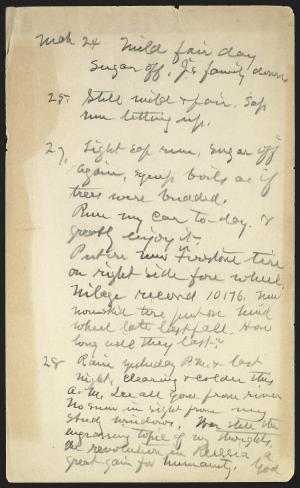 Mch 24 Mild fair day
Sugar off. J's family down
25. Still mild & fair. Sap
run letting up.
27, Light sap run, sugar off
again, syrup boils as if
trees were budded.
Run my car to-day. &
greatly enjoy it.
Put on new Firestone tire
on right side fore wheel.
Milage record 10176. New
nonskid tire put on hind
wheel late last fall. How
long will they last?
28 Rain yesterday P.M. & last
night, clearing & colder this
A.M. Ice all gone from river
No snow in sight from my
study windows. War still the
engrossing topic of my thoughts,
the revolution in Russia a
great gain for humanity. God